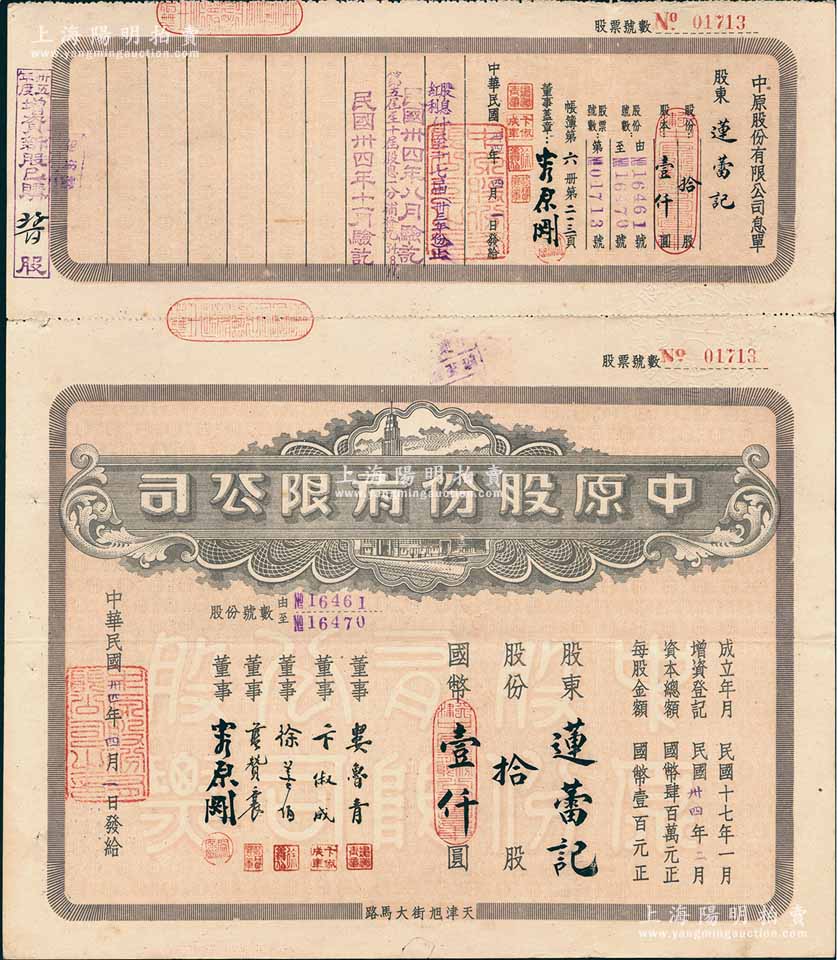 上海陽明拍賣
www.yangmingauction.com
股票號數 № 01713
中原股份有限公司息單
股東 蓮蕾記
股份： 拾 股
股本： 壹仟 圓
股份號數： 由№16461號
至№16470號
股票號數： 第№01713號
帳簿第六冊第二三頁
董事蓋章：
中華民國卅四年四月一日發給
民國卅四年八月驗訖
民國卅四年十一月驗訖
卅五年度增資新股已購 股
股票號數 № 01713
上海陽明拍賣
www.yangmingauction.com
中原股份有限公司
股份號數 由№16461
至№16470
成立年月 民國十七年一月
增資登記 民國卅四年二月
資本總額 國幣肆百萬元正
每股金額 國幣壹百元正
股東 蓮蕾記
股份 拾 股
國幣 壹仟 圓
董事 婁魯青
董事 卞俶成
董事 徐
董事
董事
中華民國卅四年四月一日發給
天津旭街大馬路
上海陽明拍賣
www.yangmingauction.com